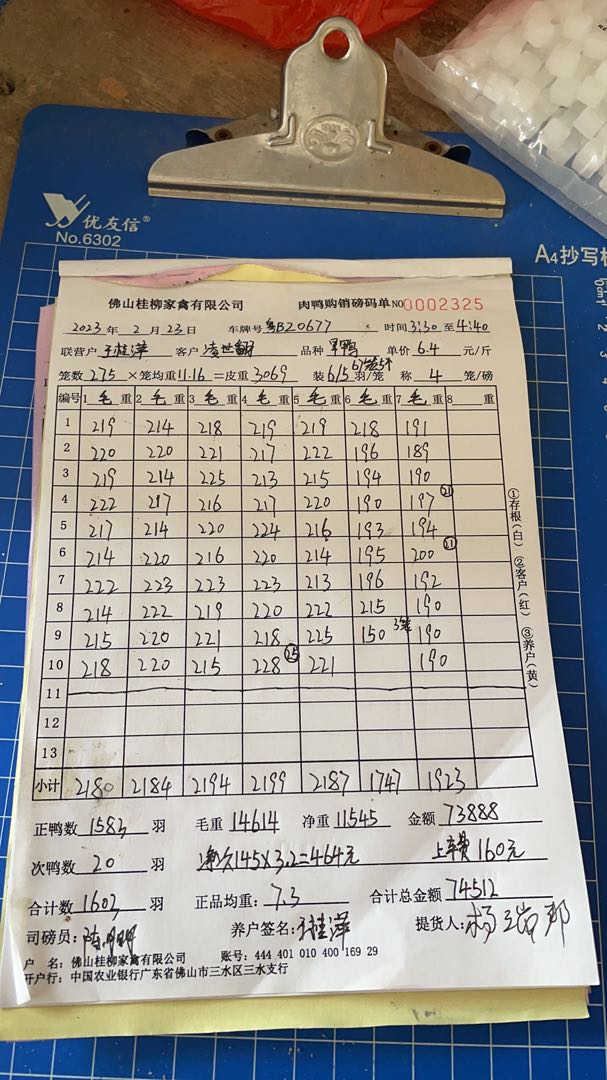 优友信®
No.6302
A4抄写板
佛山桂柳家禽有限公司 肉鸭购销磅码单 NO 0002325
2023年 2月 23日 车牌号 粤BZ0677 时间 3:30至4:40
联营户 客户 品种 单价 6.4 元/斤
笼数 275 ×笼均重 11.16 =皮重 3069 装 6/5 羽/笼 称 4 笼/磅
编号 1 毛 重 2 毛 重 3 毛 重 4 毛 重 5 毛 重 6 毛 重 7 毛 重 8 重
1 219 214 218 219 219 218 191
2 220 220 221 217 222 196 189
3 219 214 225 213 215 194 190
4 222 217 216 217 220 190 197 ㉑
5 217 214 220 224 216 193 194
6 214 220 216 220 214 195 200 ⑪
7 222 223 223 223 213 196 192
8 214 222 219 220 222 215 190
9 215 220 221 218 225 150 3笼 190
10 218 220 215 228 ⑮ 221 190
11
12
13
小计 2180 2184 2194 2199 2187 1747 1923
①存根(白) ②客户(红) ③养户(黄)
正鸭数 1583 羽 毛重 14614 净重 11545 金额 73888
次鸭数 20 羽 145×3.2=464元 上车费160元
合计数 1603 羽 正品均重: 7.3 合计总金额 74512
司磅员: 养户签名: 提货人:
户 名: 佛山桂柳家禽有限公司 账号: 444 401 010 400 169 29
开户行: 中国农业银行广东省佛山市三水区三水支行